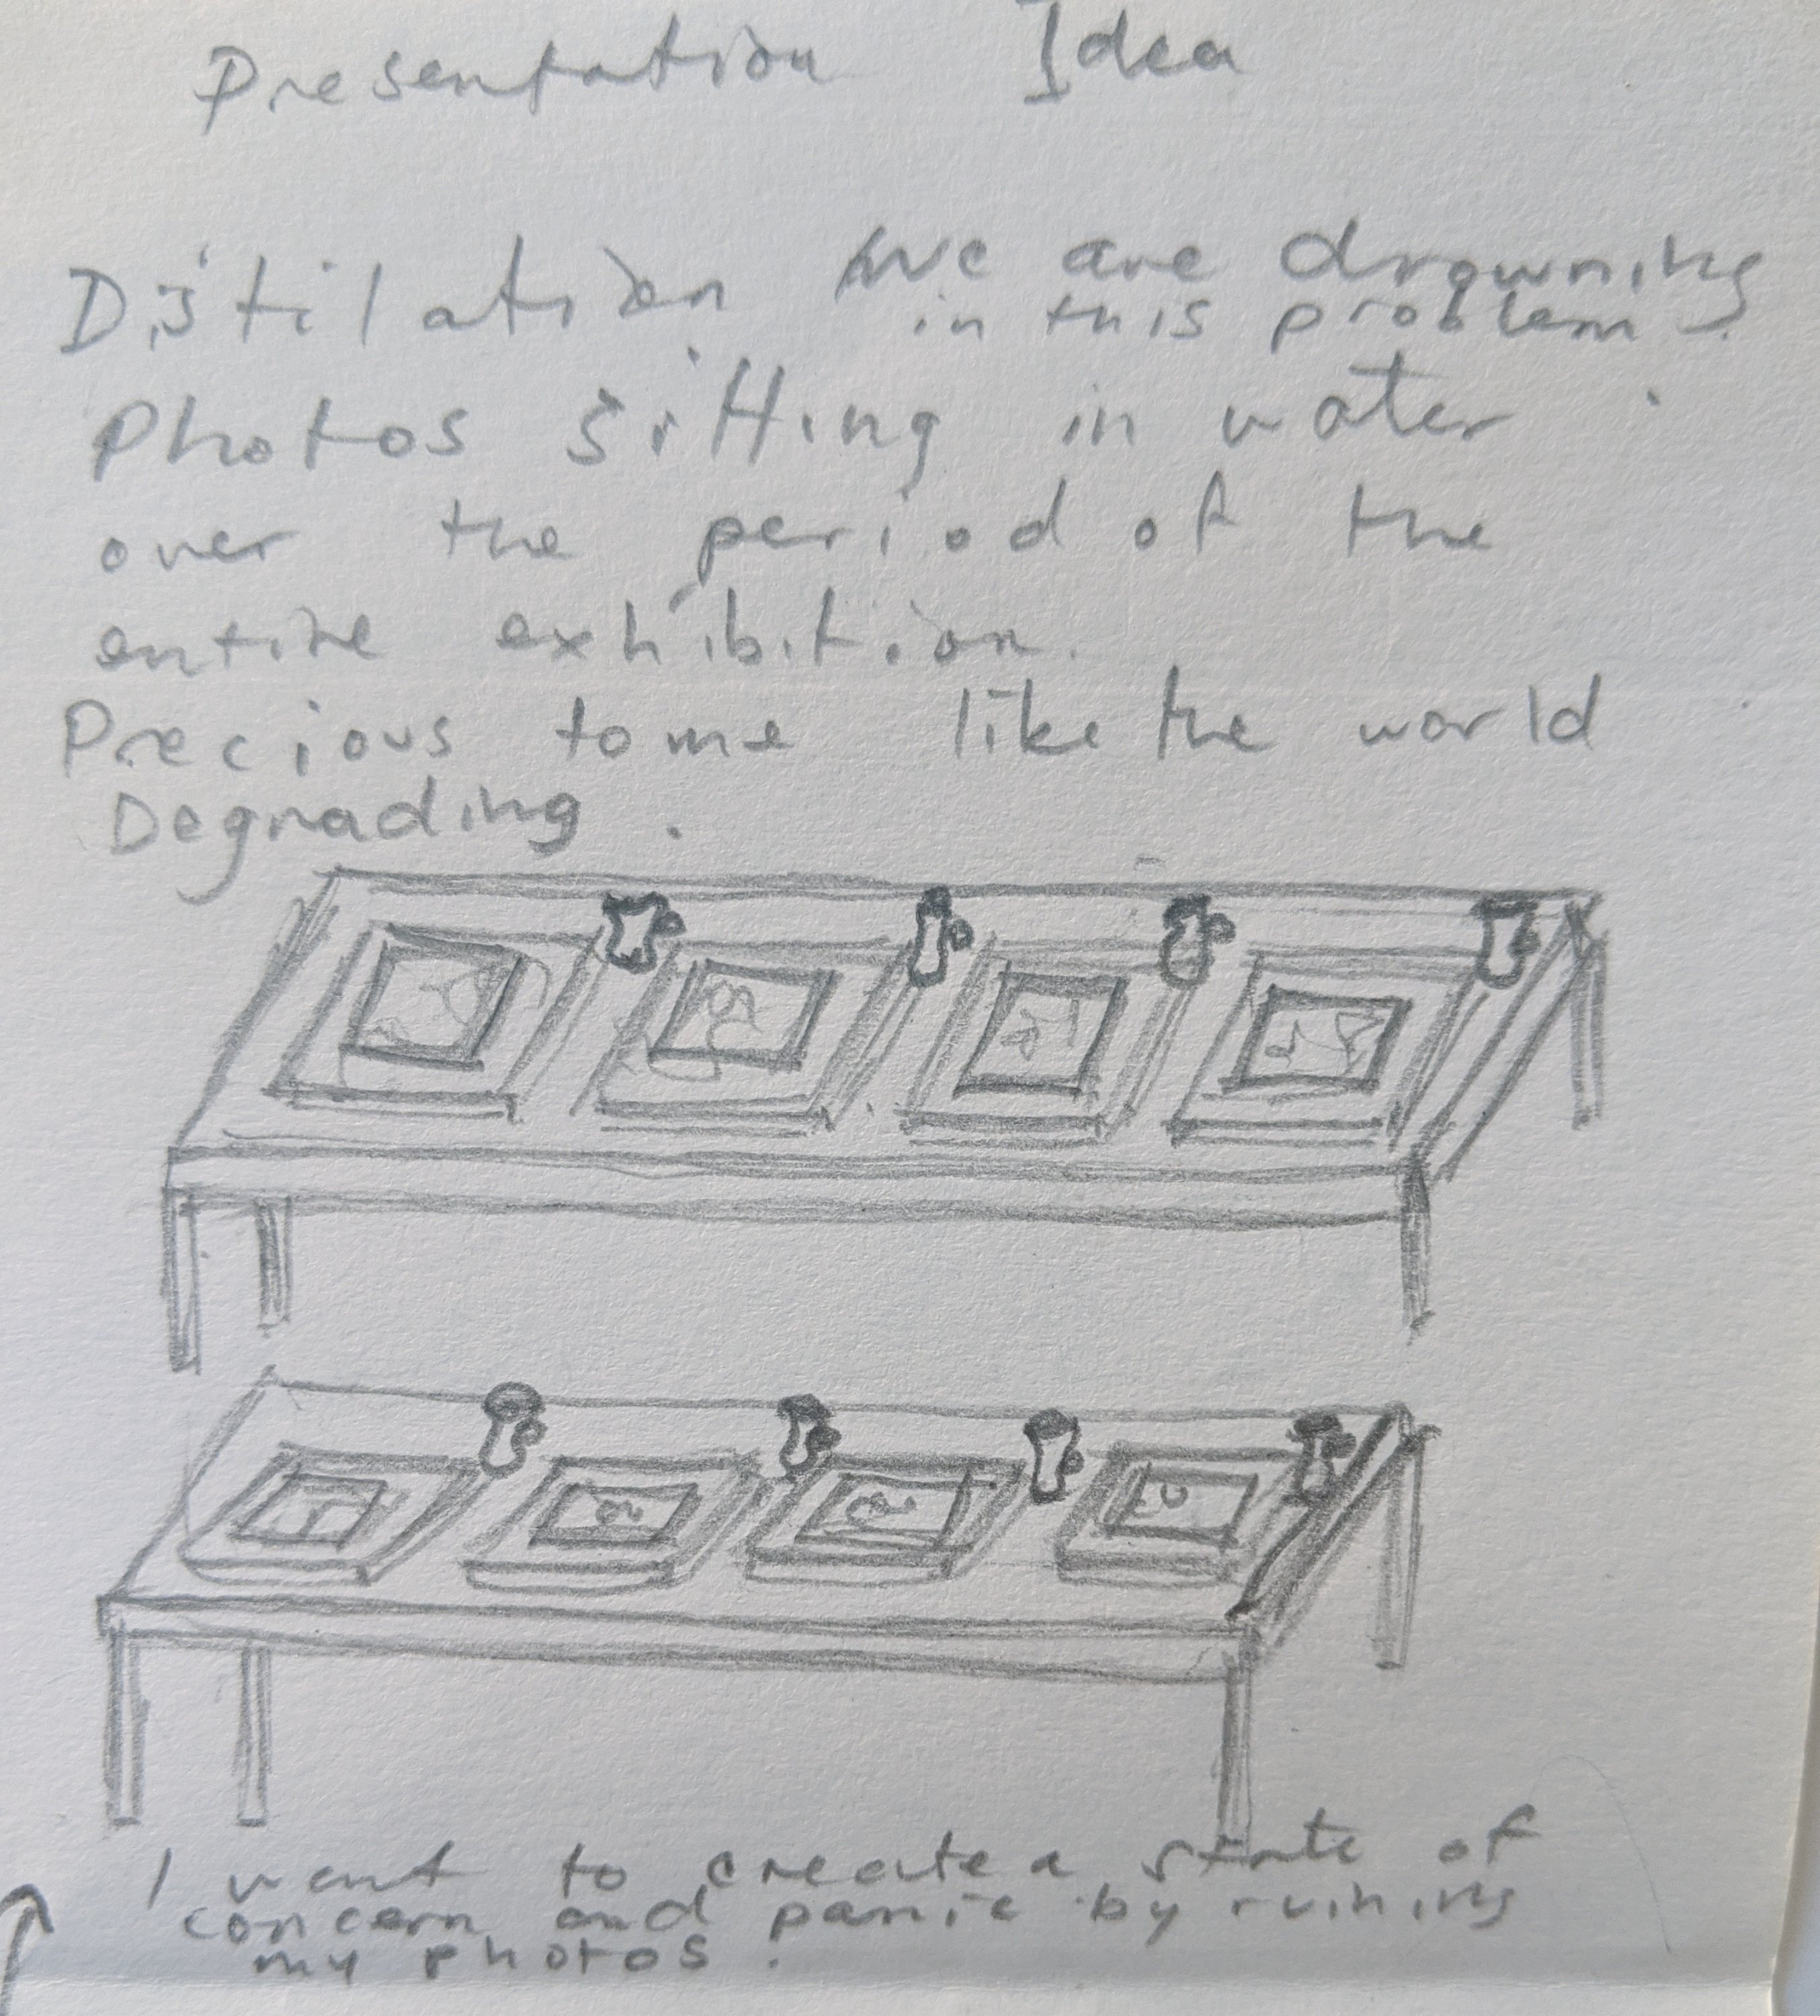 Presentation Idea
Distilation We are drowning
in this problem.
Photos sitting in water
over the period of the
entire exhibition.
Precious to me like the world
Degrading.
I want to create a state of
concern and panic by ruining
my photos.